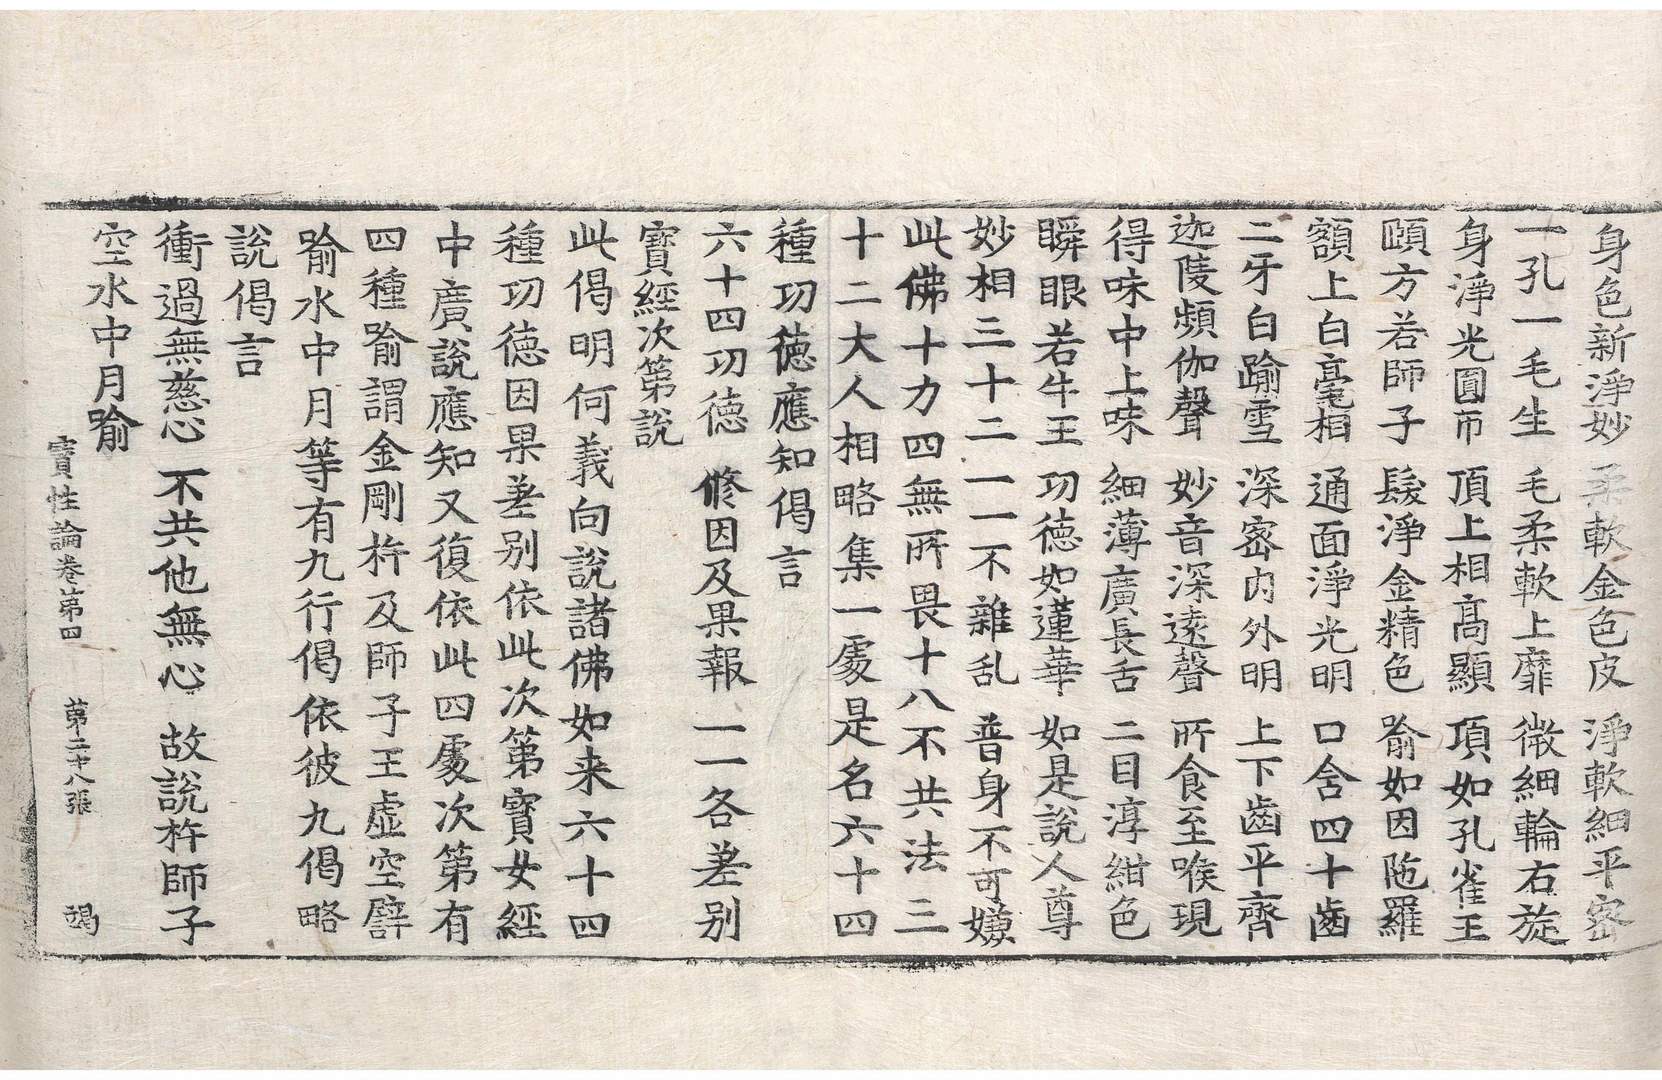 身色新淨妙 柔軟金色皮 淨軟細平密
一孔一毛生 毛柔軟上靡 微細輪右旋
身淨光圓帀 頂上相高顯 項如孔雀王
頤方若師子 髮淨金精色 喻如因陁羅
額上白毫相 通面淨光明 口含四十齒
二牙白踰雪 深密內外明 上下齒平齊
迦陵頻伽聲 妙音深遠聲 所食至喉現
得味中上味 細薄廣長舌 二目淳紺色
瞬眼若牛王 功德如蓮華 如是說人尊
妙相三十二 一一不雜乱 普身不可嫌
此佛十力四無所畏十八不共法三
十二大人相略集一處是名六十四
種功德應知偈言
六十四功德 修因及果報 一一各差別
寶經次第說
此偈明何義向說諸佛如来六十四
種功德因果差别依此次第寶女經
中廣說應知又復依此四處次第有
四種喻謂金剛杵及師子王虛空譬
喻水中月等有九行偈依彼九偈略
說偈言
衝過無慈心 不共他無心 故說杵師子
空水中月喻
寶性論卷第四 第二十八張 竭